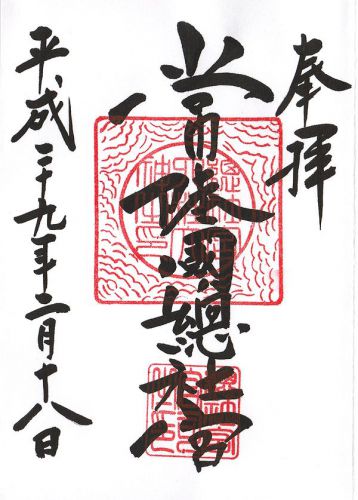 奉拝
常陸國總社宮
平成二十九年二月十八日